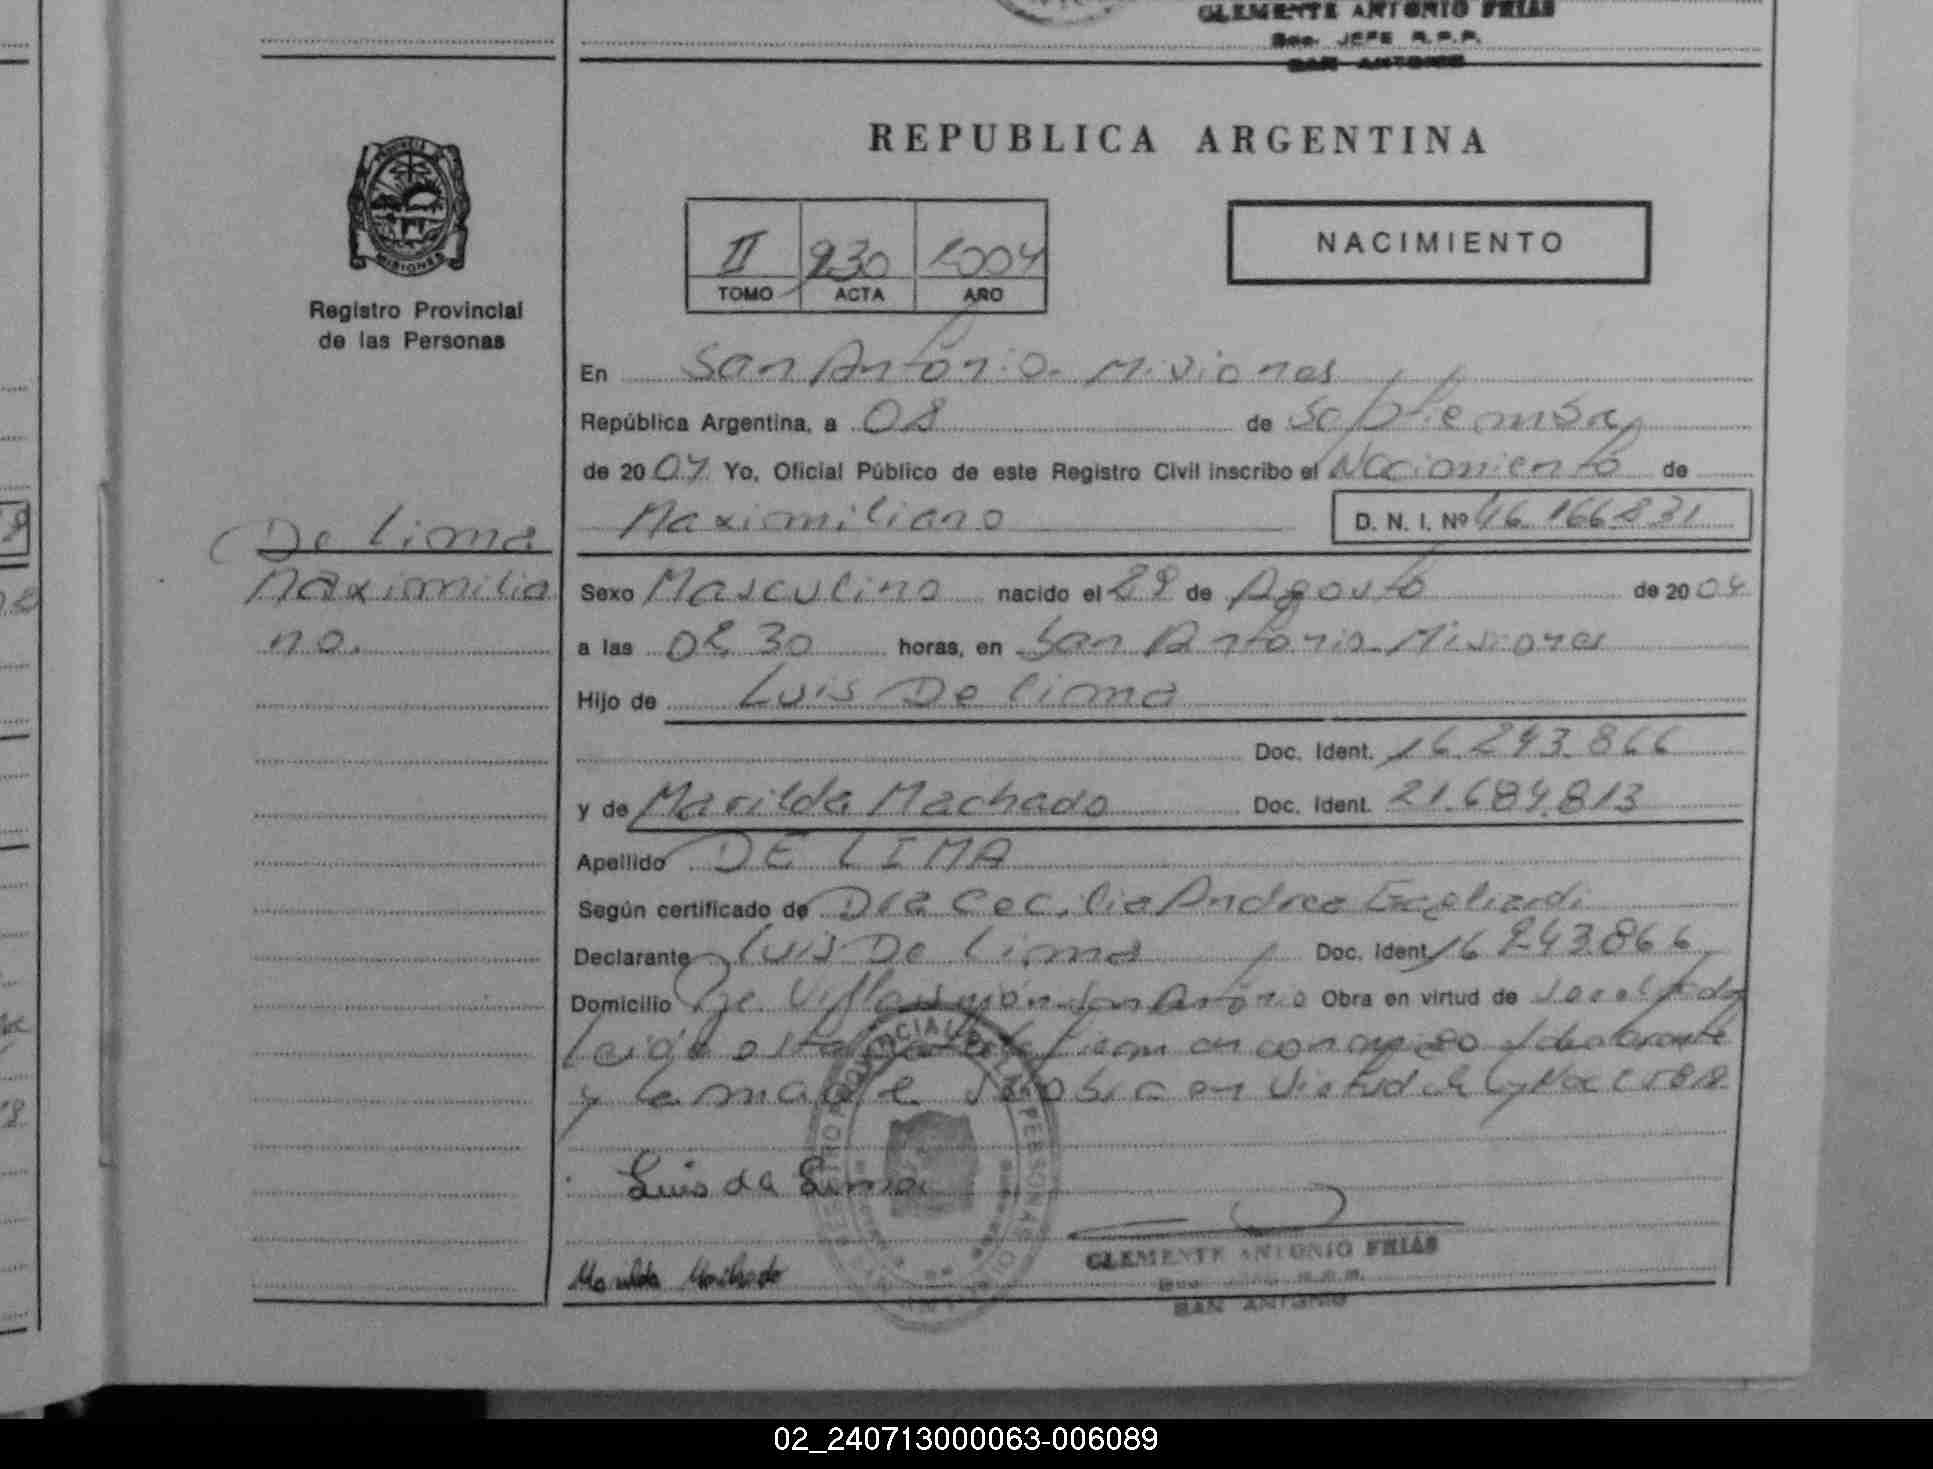 CLEMENTE ANTONIO FRIAS
JEFE R.P.P.
SAN ANTONIO
REPUBLICA ARGENTINA
PROVINCIA DE
MISIONES
Registro Provincial
de las Personas
II 230 2004
TOMO ACTA AÑO
NACIMIENTO
En San Antonio - Misiones
República Argentina, a 08 de Septiembre
de 2004 Yo, Oficial Público de este Registro Civil inscribo el Nacimiento de
Maximiliano D. N. I. Nº 46.166.831
De Lima
Maximilia
no.
Sexo Masculino nacido el 29 de Agosto de 2004
a las 08.30 horas, en San Antonio - Misiones
Hijo de Luis De Lima
Doc. Ident. 16.243.866
y de Marilda Machado Doc. Ident. 21.684.813
Apellido DE LIMA
Según certificado de Dra Cecilia Andrea
Declarante Luis De Lima Doc. Ident. 16.243.866
Domicilio San Antonio Obra en virtud de
Leida esta acta firman conmigo el declarante
y la madre en virtud de
Luis da Lima
Marilda Machado
CLEMENTE ANTONIO FRIAS
SAN ANTONIO
02_240713000063-006089